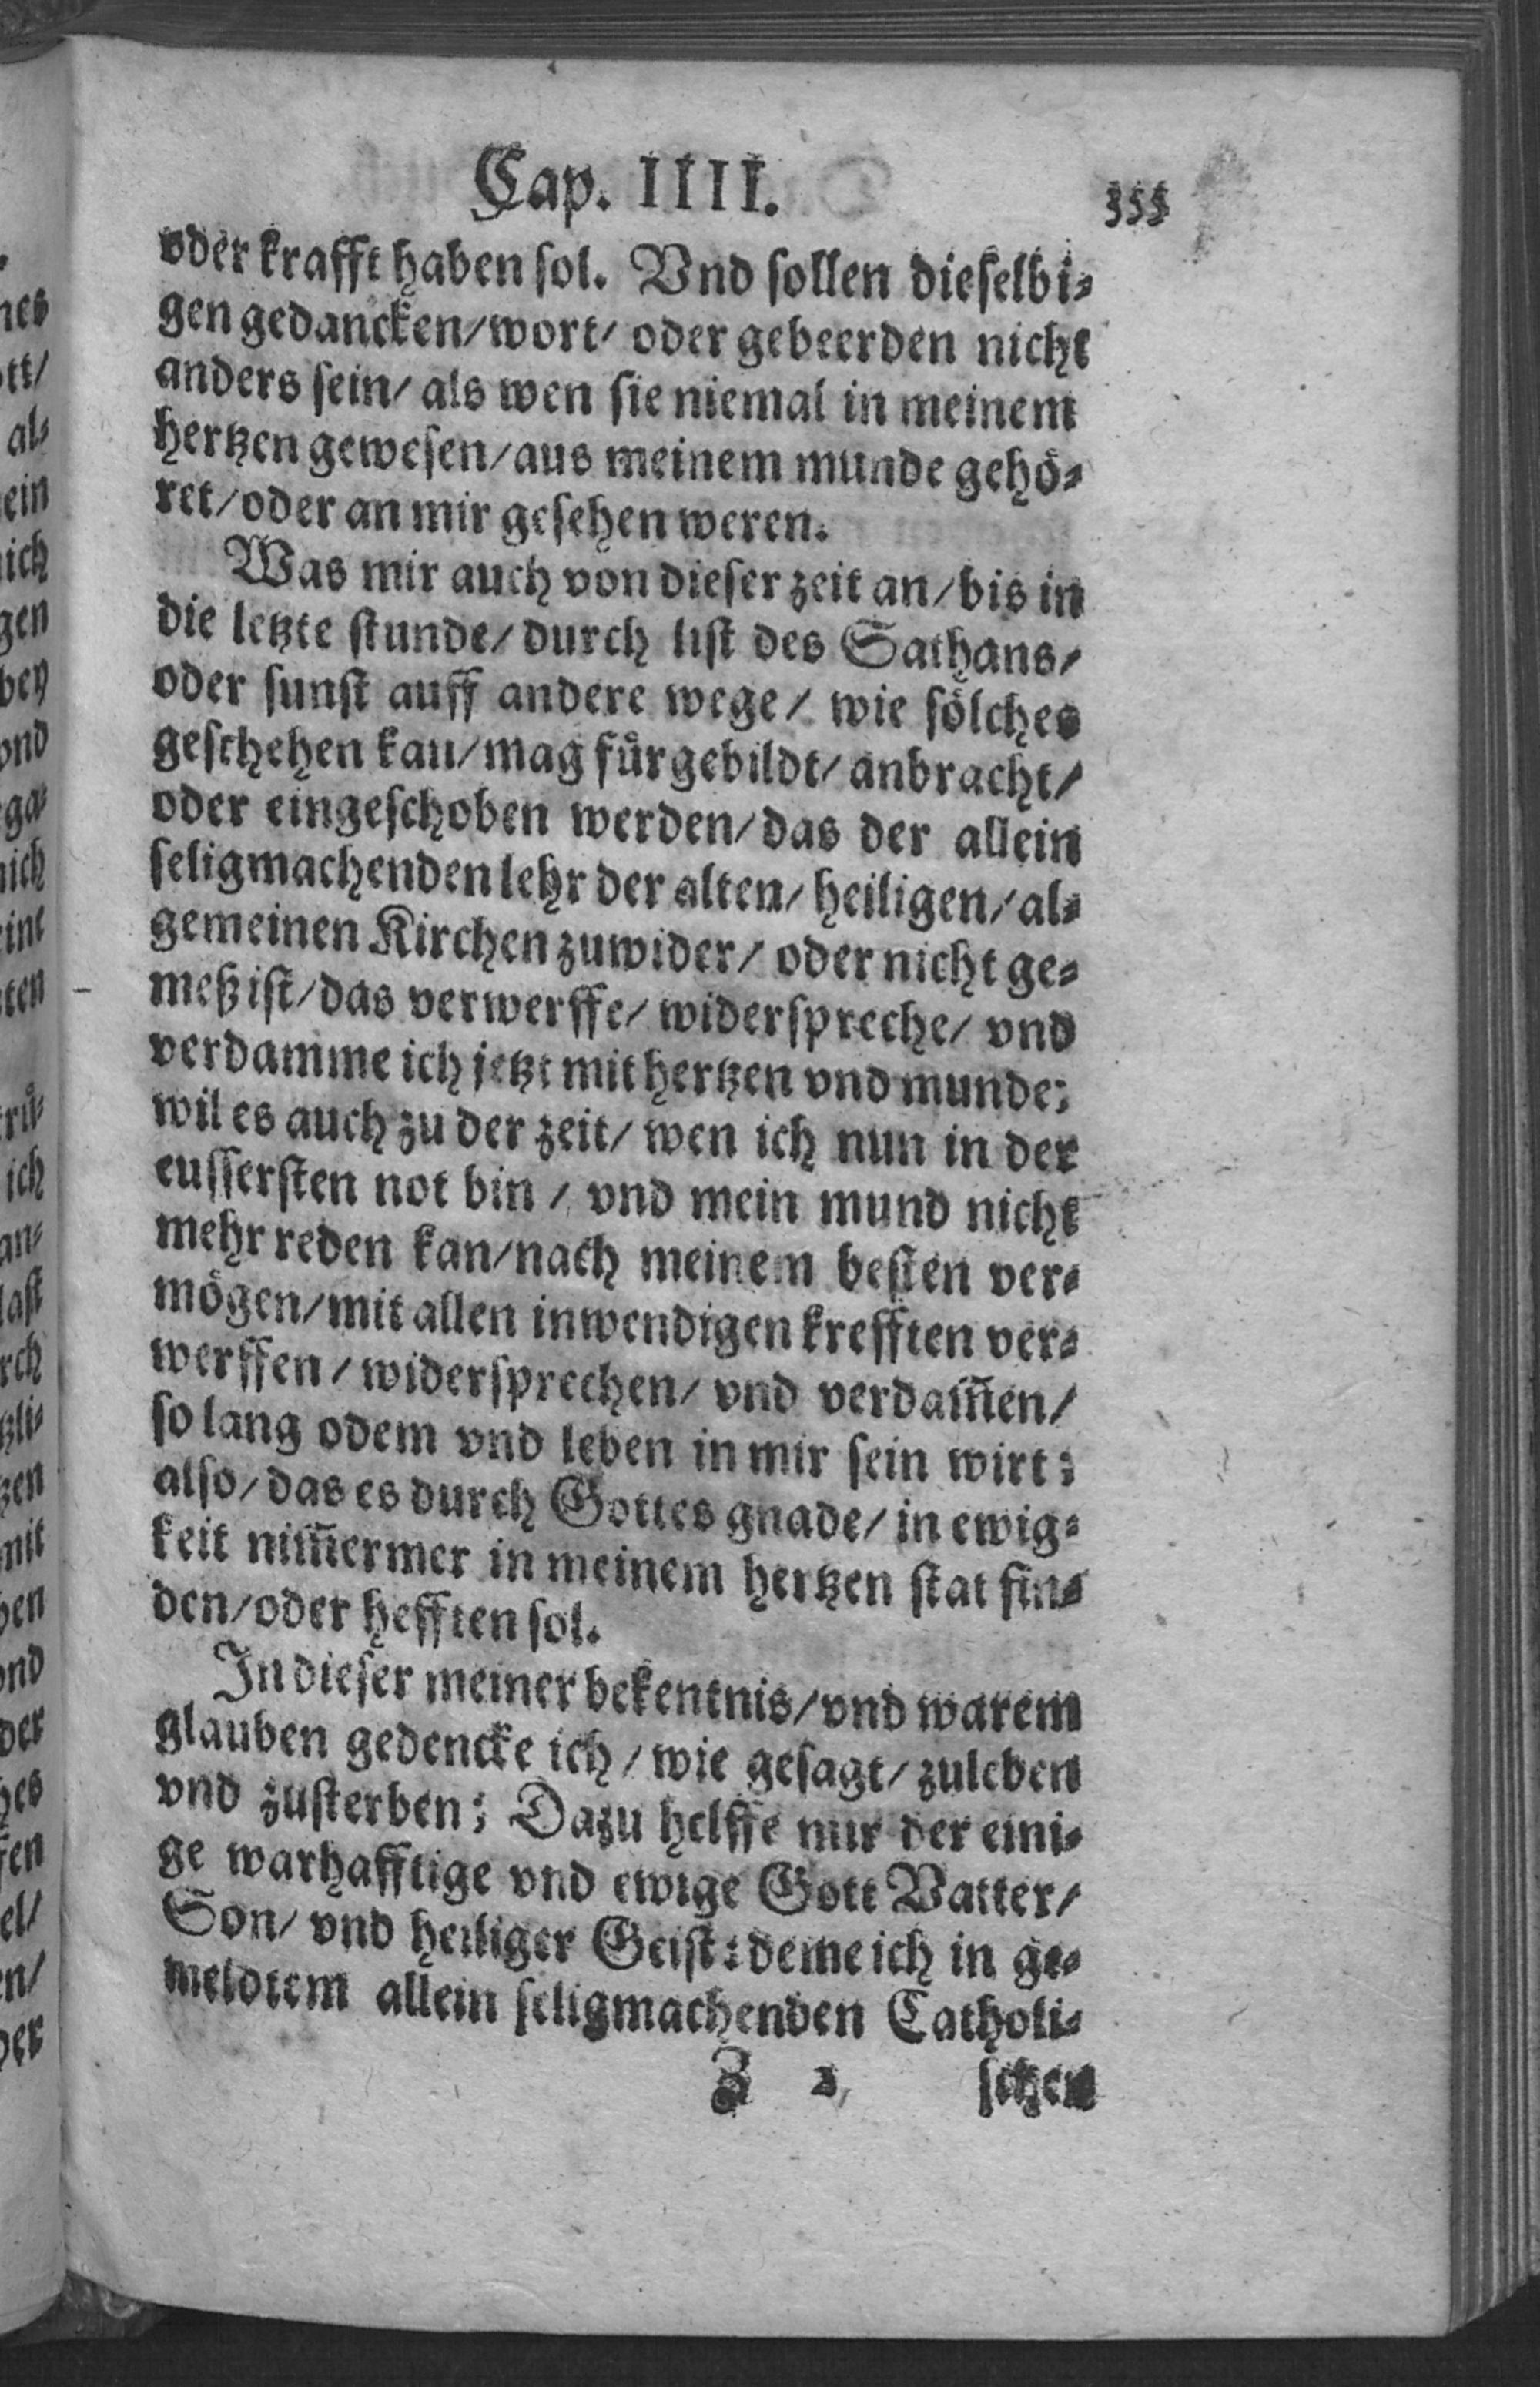 Cap. IIII. 355
oder krafft haben sol. Vnd sollen dieselbi⸗
gen gedancken/wort/ oder gebeerden nicht
anders sein/ als wen sie niemal in meinem
hertzen gewesen/aus meinem munde gehoͤ⸗
ret/oder an mir gesehen weren.
Was mir auch von dieser zeit an/bis in
die letzte stunde/durch list des Sathans/
oder sunst auff andere wege/ wie soͤlches
geschehen kan/mag fuͤrgebildt/anbracht/
oder eingeschoben werden/das der allein
seligmachenden lehr der alten/heiligen/al⸗
gemeinen Kirchen zuwider/ oder nicht ge⸗
meß ist/das verwerffe/ widerspreche/ vnd
verdamme ich jetzt mit hertzen vnd munde:
wil es auch zu der zeit/ wen ich nun in der
eussersten not bin/ vnd mein mund nicht
mehr reden kan/nach meinem besten ver⸗
moͤgen/mit allen inwendigen krefften ver⸗
werffen/widersprechen/ vnd verdam̄en/
so lang odem vnd leben in mir sein wirt:
also/das es durch Gottes gnade/in ewig⸗
keit nim̄ermer in meinem hertzen stat fin⸗
den/oder hefften sol.
In dieser meiner bekentnis/vnd warem
glauben gedencke ich/wie gesagt/zuleben
vnd zusterben: Dazu helffe mir der eini⸗
ge warhafftige vnd ewige Gott Vatter/
Son/ vnd heiliger Geist: deme ich in ge⸗
meldtem allein seligmachenden Catholi⸗
Z 2 schen